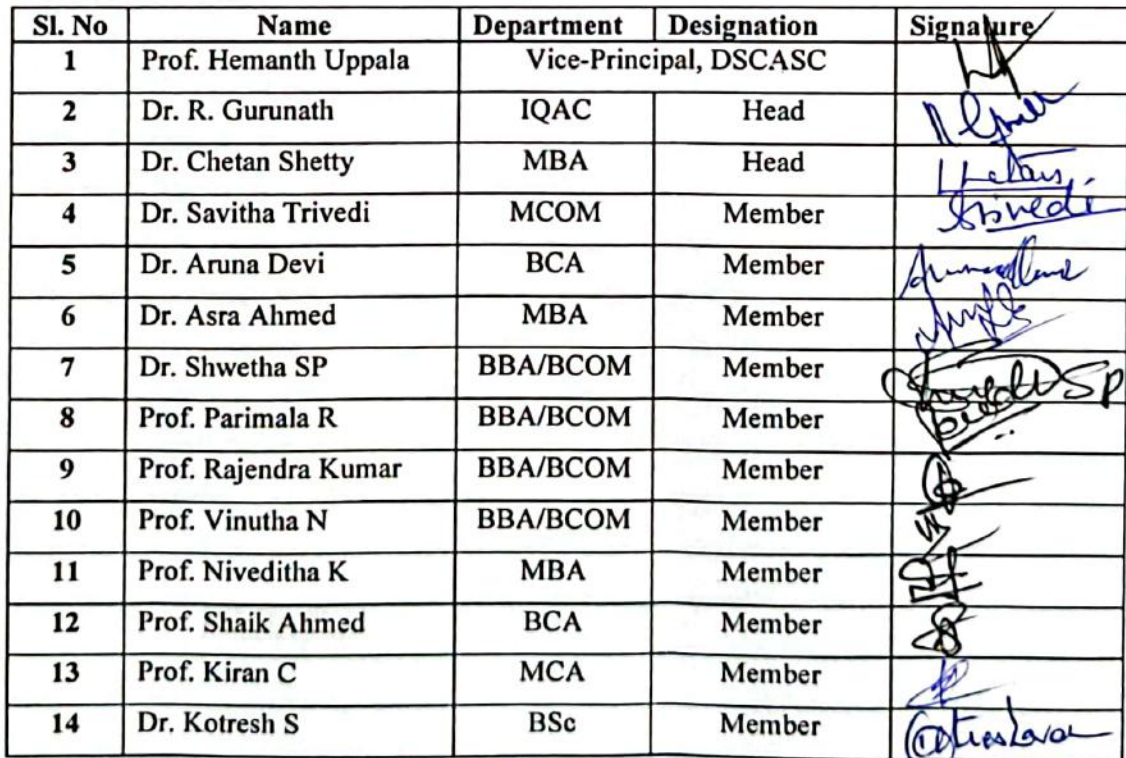 Sl. No Name Department Designation Signature
1 Prof. Hemanth Uppala Vice-Principal, DSCASC
2 Dr. R. Gurunath IQAC Head
3 Dr. Chetan Shetty MBA Head
4 Dr. Savitha Trivedi MCOM Member
5 Dr. Aruna Devi BCA Member
6 Dr. Asra Ahmed MBA Member
7 Dr. Shwetha SP BBA/BCOM Member SP
8 Prof. Parimala R BBA/BCOM Member
9 Prof. Rajendra Kumar BBA/BCOM Member
10 Prof. Vinutha N BBA/BCOM Member
11 Prof. Niveditha K MBA Member
12 Prof. Shaik Ahmed BCA Member
13 Prof. Kiran C MCA Member
14 Dr. Kotresh S BSc Member